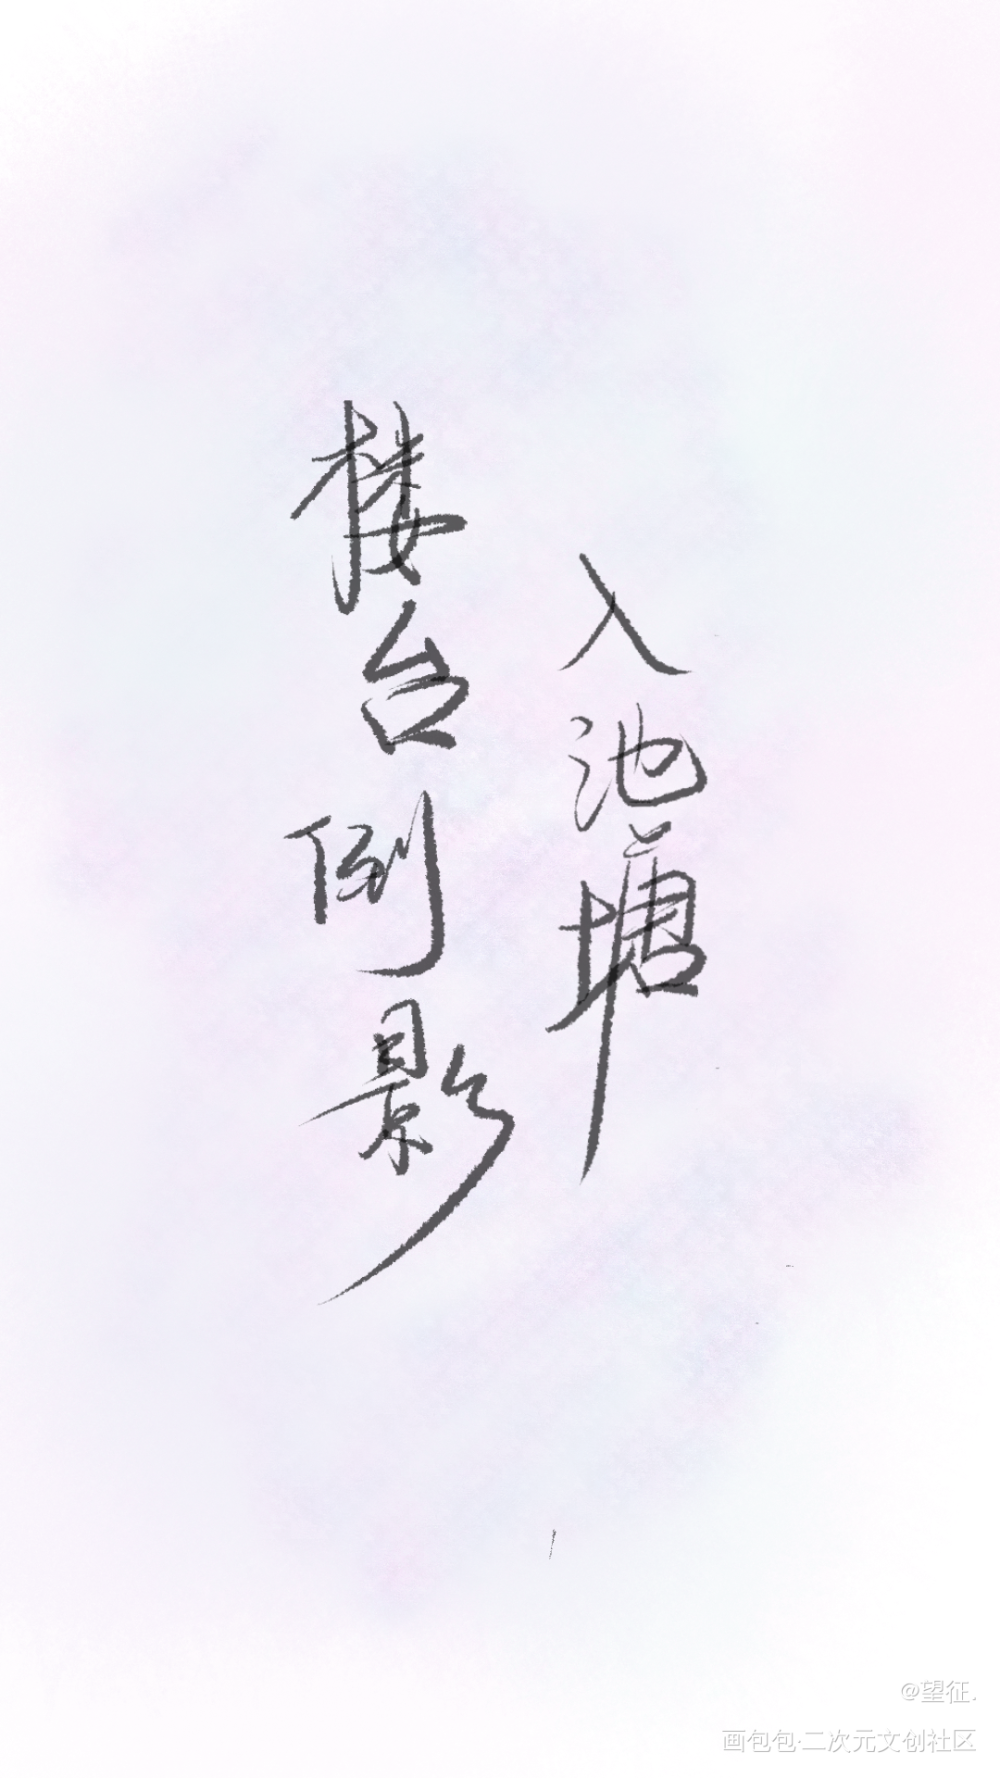 楼台倒影
入池塘
@望征.
画包包·二次元文创社区